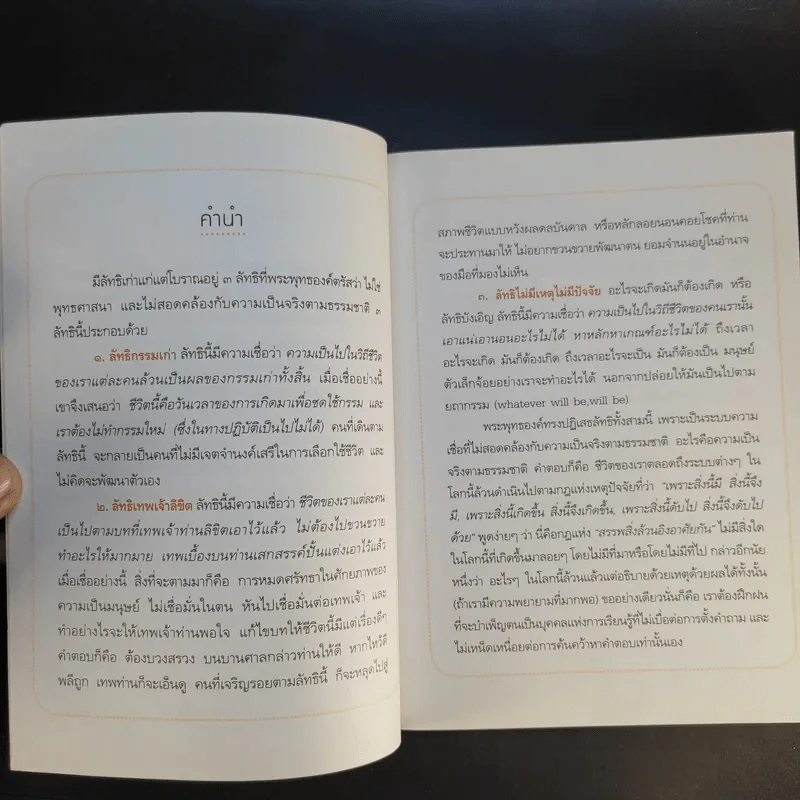 คำนำ
มีลัทธิเก่าแก่แต่โบราณอยู่ ๓ ลัทธิที่พระพุทธองค์ตรัสว่า ไม่ใช่
พุทธศาสนา และไม่สอดคล้องกับความเป็นจริงตามธรรมชาติ ๓
ลัทธินี้ประกอบด้วย
๑. ลัทธิกรรมเก่า ลัทธินี้มีความเชื่อว่า ความเป็นไปในวิถีชีวิต
ของเราแต่ละคนล้วนเป็นผลของกรรมเก่าทั้งสิ้น เมื่อเชื่ออย่างนี้
เขาจึงเสนอว่า ชีวิตนี้คือวันเวลาของการเกิดมาเพื่อชดใช้กรรม และ
เราต้องไม่ทำกรรมใหม่ (ซึ่งในทางปฏิบัติเป็นไปไม่ได้) คนที่เดินตาม
ลัทธินี้ จะกลายเป็นคนที่ไม่มีเจตจำนงค์เสรีในการเลือกใช้ชีวิต และ
ไม่คิดจะพัฒนาตัวเอง
๒. ลัทธิเทพเจ้าลิขิต ลัทธินี้มีความเชื่อว่า ชีวิตของเราแต่ละคน
เป็นไปตามบทที่เทพเจ้าท่านลิขิตเอาไว้แล้ว ไม่ต้องไปขวนขวาย
ทำอะไรให้มากมาย เทพเบื้องบนท่านเสกสรรค์ปั้นแต่งเอาไว้แล้ว
เมื่อเชื่ออย่างนี้ สิ่งที่จะตามมาก็คือ การหมดศรัทธาในศักยภาพของ
ความเป็นมนุษย์ ไม่เชื่อมั่นในตน หันไปเชื่อมั่นต่อเทพเจ้า และ
ทำอย่างไรจะให้เทพเจ้าท่านพอใจ แก้ไขบทให้ชีวิตนี้มีแต่เรื่องดีๆ
คำตอบก็คือ ต้องบวงสรวง บนบานศาลกล่าวท่านให้ดี หากไหว้ดี
พลีถูก เทพท่านก็จะเอ็นดู คนที่เจริญรอยตามลัทธินี้ ก็จะหลุดไปสู่
สภาพชีวิตแบบหวังผลดลบันดาล หรือหลักลอยนอนคอยโชคที่ท่าน
จะประทานมาให้ ไม่อยากขวนขวายพัฒนาตน ยอมจำนนอยู่ในอำนาจ
ของมือที่มองไม่เห็น
๓. ลัทธิไม่มีเหตุไม่มีปัจจัย อะไรจะเกิดมันก็ต้องเกิด หรือ
ลัทธิบังเอิญ ลัทธินี้มีความเชื่อว่า ความเป็นไปในวิถีชีวิตของคนเรานั้น
เอาแน่เอานอนอะไรไม่ได้ หาหลักหาเกณฑ์อะไรไม่ได้ ถึงเวลา
อะไรจะเกิด มันก็ต้องเกิด ถึงเวลาอะไรจะเป็น มันก็ต้องเป็น มนุษย์
ตัวเล็กจ้อยอย่างเราจะทำอะไรได้ นอกจากปล่อยให้มันเป็นไปตาม
ยถากรรม (whatever will be,will be)
พระพุทธองค์ทรงปฏิเสธลัทธิทั้งสามนี้ เพราะเป็นระบบความ
เชื่อที่ไม่สอดคล้องกับความเป็นจริงตามธรรมชาติ อะไรคือความเป็น
จริงตามธรรมชาติ คำตอบก็คือ ชีวิตของเราตลอดถึงระบบต่างๆ ใน
โลกนี้ล้วนดำเนินไปตามกฎแห่งเหตุปัจจัยที่ว่า "เพราะสิ่งนี้มี สิ่งนี้จึง
มี, เพราะสิ่งนี้เกิดขึ้น สิ่งนี้จึงเกิดขึ้น, เพราะสิ่งนี้ดับไป สิ่งนี้จึงดับไป
ด้วย" พูดง่ายๆ ว่า นี่คือกฎแห่ง "สรรพสิ่งล้วนอิงอาศัยกัน" ไม่มีสิ่งใด
ในโลกนี้ที่เกิดขึ้นมาลอยๆ โดยไม่มีที่มาหรือโดยไม่มีที่ไป กล่าวอีกนัย
หนึ่งว่า อะไรๆ ในโลกนี้ล้วนแล้วแต่อธิบายด้วยเหตุด้วยผลได้ทั้งนั้น
(ถ้าเรามีความพยายามที่มากพอ) ขออย่างเดียวนั่นก็คือ เราต้องฝึกฝน
ที่จะบำเพ็ญตนเป็นบุคคลแห่งการเรียนรู้ที่ไม่เบื่อต่อการตั้งคำถาม และ
ไม่เหน็ดเหนื่อยต่อการค้นคว้าหาคำตอบเท่านั้นเอง